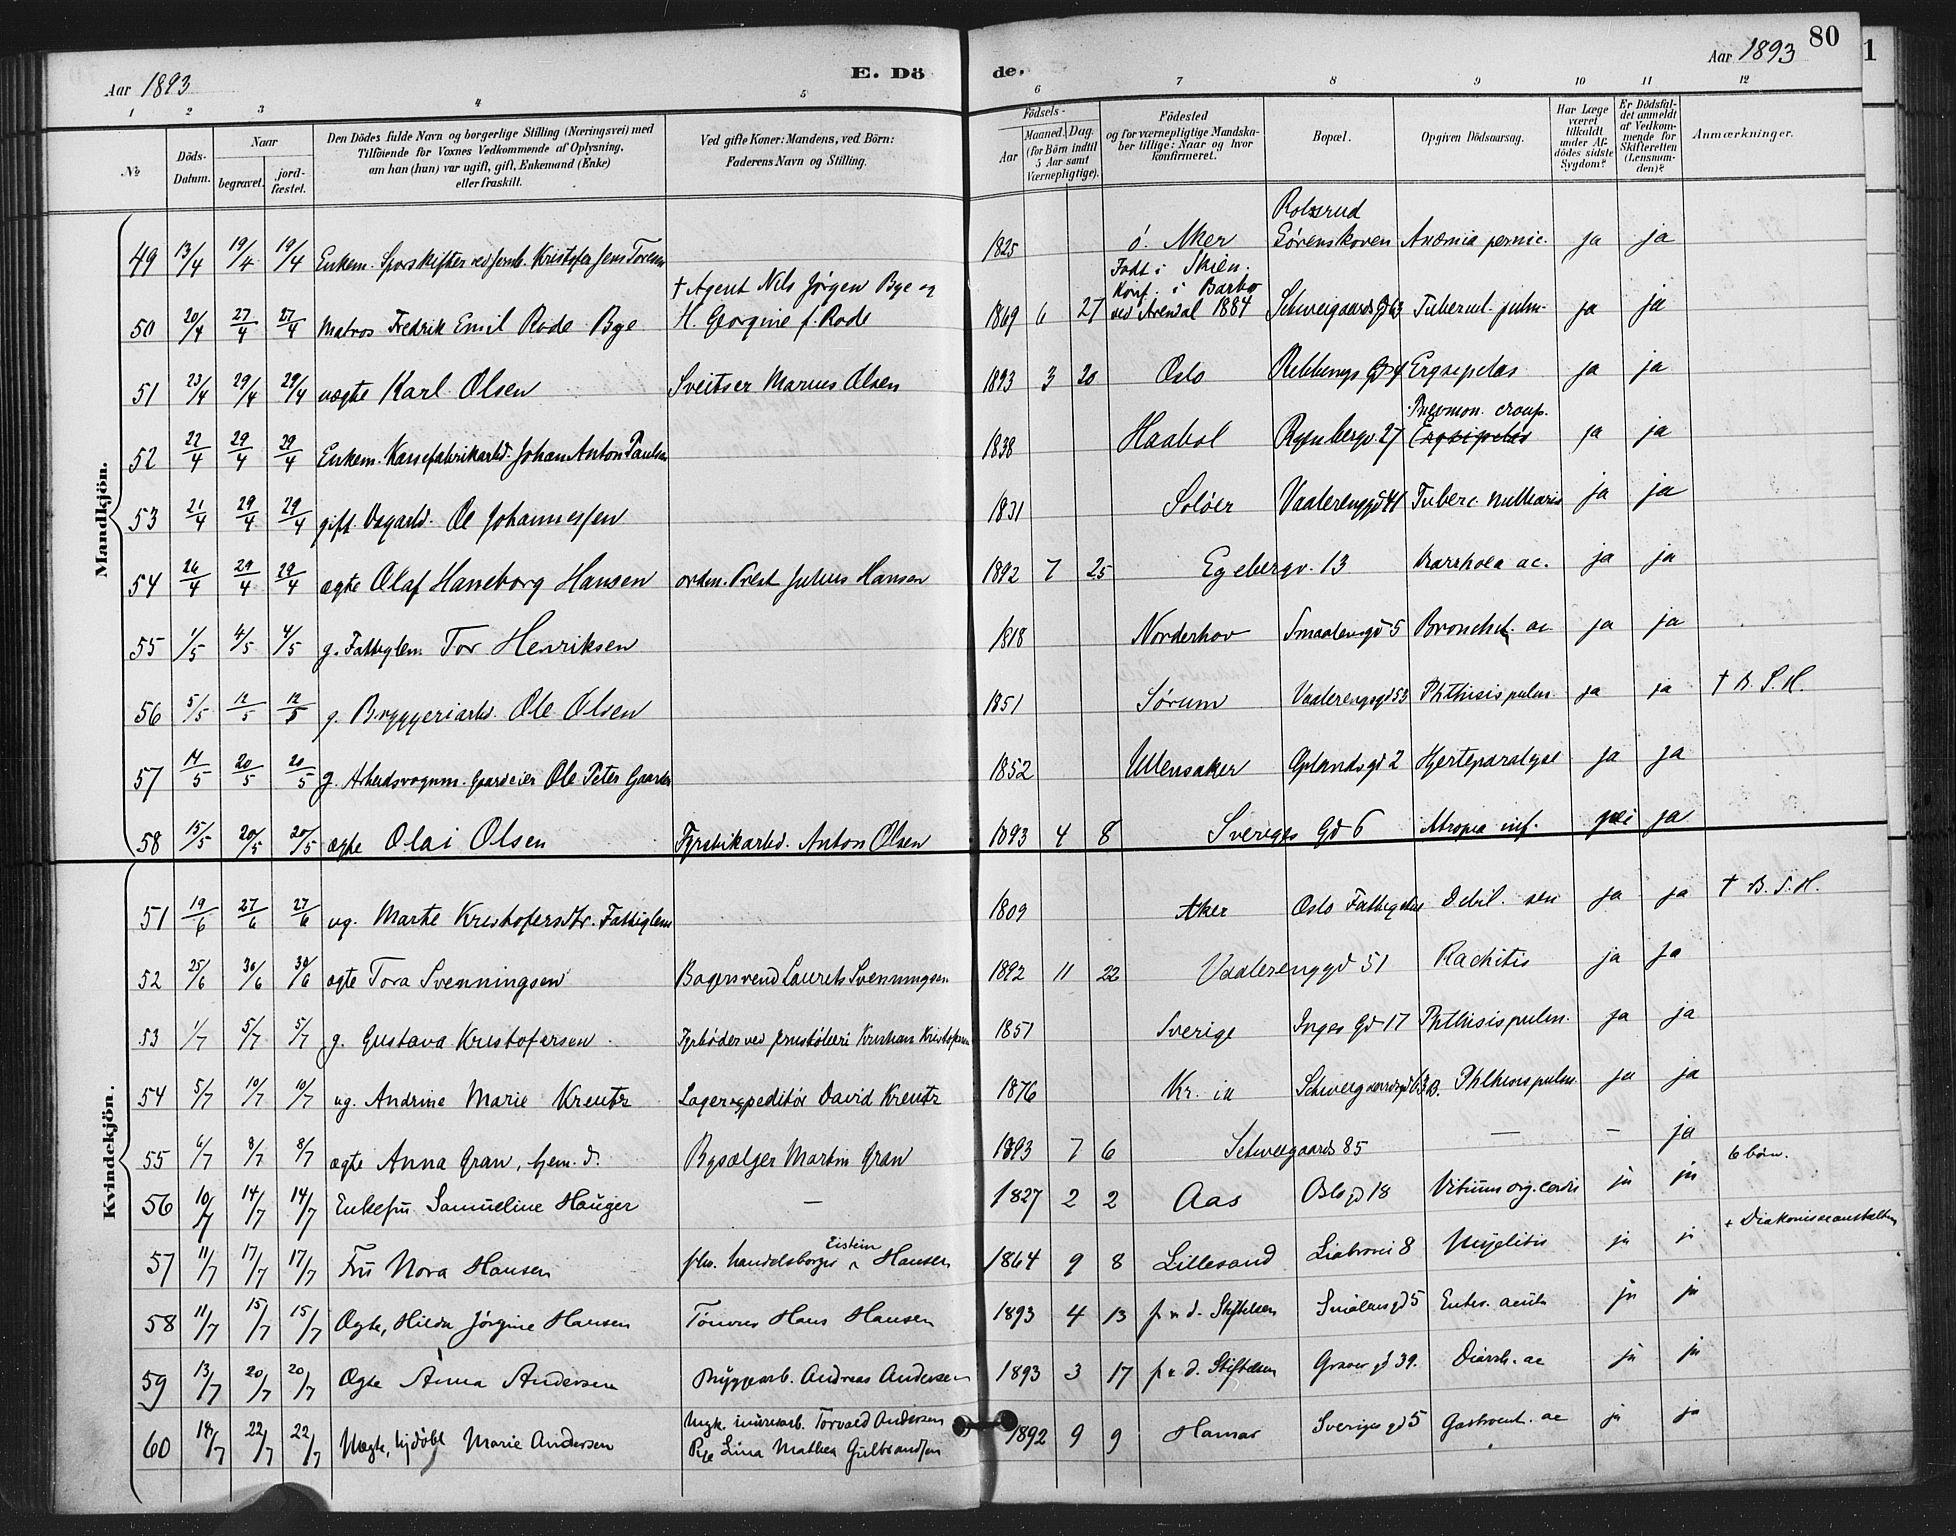 Aar 1893 E. Dö de. Aar 1893 80
1 2 3 4 5 6 7 8 9 10 11 12
№ Döds-Datum. Naar begravet. jordfæstet. Den Dödes fulde Navn og borgerlige Stilling (Næringsvei) med Tilföiende for Voxnes Vedkommende af Oplysning, om han (hun) var ugift, gift, Enkemand (Enke) eller fraskilt. Ved gifte Koner: Mandens, ved Börn: Faderens Navn og Stilling. Födsels- Aar Maaned. Dag. (for Börn indtil 5 Aar samt Værnepligtige). Födested og for værnepligtige Mandskaber tillige: Naar og hvor konfirmeret. Bopæl. Opgiven Dödsaarsag. Har Læge været tilkaldt under Afdödes sidste Sygdom? Er Dödsfaldet anmeldt af Vedkommende for Skifteretten (Lensmanden)? Anmærkninger.
Mandkjön.
49 13/4 19/4 19/4 Enkem. Sporskifter ved Jernb. Kristofer Jens 1825 ö. Aker Sörenskoven Anæmia pernic. ja ja
50 20/4 27/4 27/4 Matros Fredrik Emil Rode Bye † Agent Nils Jörgen Bye og H. Georgine f. Rode 1869 6 27 Født i Skien. Konf. i Barbo ved Arendal 1884 Schweigaards Gd 63 Tubercul. pulm. ja ja
51 23/4 29/4 29/4 uægte Karl Olsen Sveitser Marius Olsen 1893 3 20 Oslo Gd 4 Erysipelas ja ja
52 22/4 29/4 29/4 Enkem. Johan Anton Paulsen 1838 Haabøl 27 Pnevmon. croup. Erysipelas ja ja
53 21/4 29/4 29/4 gift Johannessen 1831 Soløer Vaalerenggd 41 Tuberc. ja ja
54 26/4 29/4 29/4 ægte Olaf Haneborg Hansen orden. Prest Julius Hansen 1892 7 25 Egebergv. 13 ac. ja ja
55 1/5 4/5 4/5 g. Fattiglem Tor Henriksen 1818 Norderhov Smaalensgd 5 Bronchit. ac ja ja
56 5/5 12/5 12/5 g. Bryggeriarbd. Ole Olsen 1851 Sørum Vaalerengsgd 53 Phthisis pulm. ja ja † B. S. H.
57 14/5 20/5 20/5 g. Arbeidsvognm. Gaardeier Ole Peter 1852 Ullensaker 2 Hjerteparalyse ja ja
58 15/5 20/5 20/5 ægte Olai Olsen Fyrstikarbd. Anton Olsen 1893 4 8 Sveriges Gd 6 Atropia inf. ja
Kvindekjön.
51 19/6 27/6 27/6 ug. Marte Kristofersdtr. Fattiglem 1809 Aker Oslo Debil. sen ja ja † B. S. H.
52 25/6 30/6 30/6 ægte Tora Svenningsen Bagersvend Laurits Svenningsen 1892 11 22 Vaalerenggd 51 Rachitis ja ja
53 1/7 5/7 5/7 g. Gustava Kristofersen Fyrbøder ved Kristians Kristofersen 1851 Sverige Inges Gd 17 Phthisis pulm. ja ja
54 5/7 10/7 10/7 ug. Andrine Marie Kreutz Lagerexpeditør David Kreutz 1876 Kr.ia Schweigaardsgd 63 B. Phthisis pulm. ja ja
55 6/7 8/7 8/7 ægte Anna Gran, hjem. d. Bysælger Martin Gran 1893 7 6 Schweigaards 85 — — ja
56 10/7 14/7 14/7 Enkefru Samueline Hauger — 1827 2 2 Aas Oslogd 18 Vitium org. cordis ja ja 6 børn.
57 11/7 17/7 17/7 Fru Nora Hansen fhv. handelsborger Eistein Hansen 1864 9 8 Lillesand 8 Myelitis ja ja † Diakonisseanstalten
58 11/7 15/7 15/7 Ægte, Hilda Jörgine Hansen Hans Hansen 1893 4 13 f. n. d. Stiftelsen Smålensgd 5 Enter. acuta ja ja
59 13/7 20/7 20/7 Ægte Anna Andersen Bryggearb. Andreas Andersen 1893 3 17 f. n. d. Stiftelsen gd 39. Diarrh. ac ja ja
60 18/7 22/7 22/7 Uægte, hjdöbt Marie Andersen Ungk. murerarb. Torvald Andersen Pige Lina Mathea Gulbrandsen 1892 9 9 Hamar Sveriges gd 5 Gastroent. ac ja ja